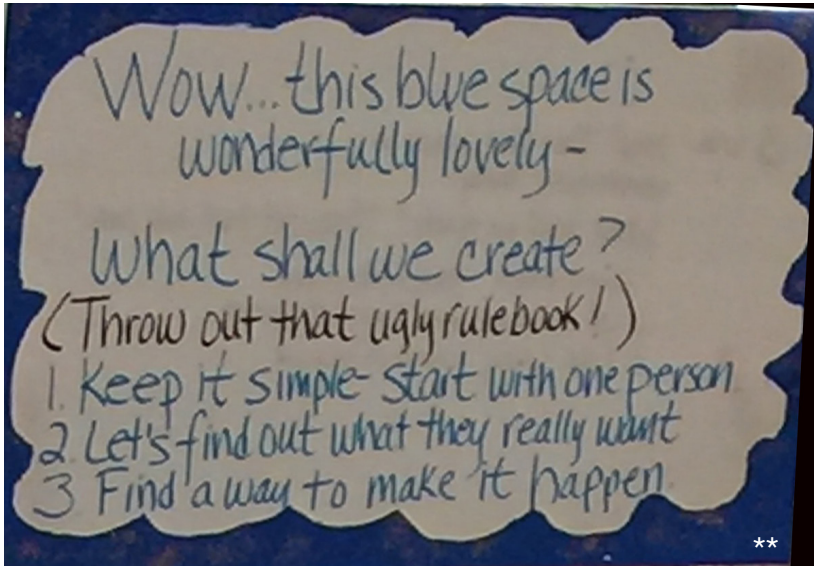 Wow... this blue space is
wonderfully lovely -
What shall we create?
(Throw out that ugly rulebook!)
1. Keep it simple- start with one person
2. Let's find out what they really want
3 Find a way to make it happen.
**